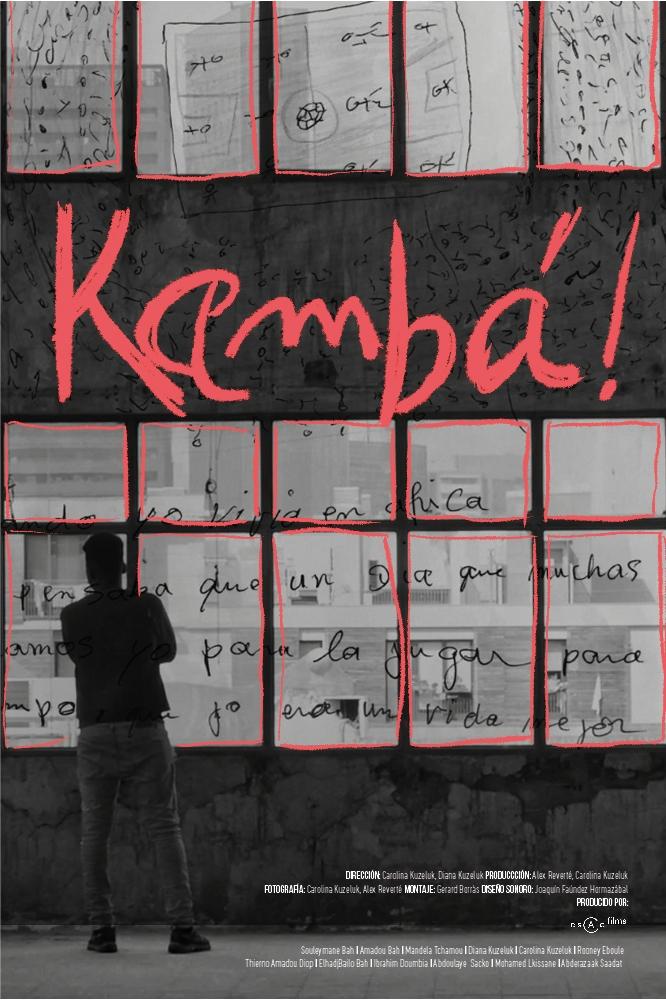 Kambá!
ando yo vivia en africa
pensaba que un Dia que muchas
amos yo para la jugar para
mpo que yo era un vida mejor
DIRECCIÓN: Carolina Kuzeluk, Diana Kuzeluk PRODUCCCIÓN: Alex Reverté, Carolina Kuzeluk
FOTOGRAFÍA: Carolina Kuzeluk, Alex Reverté MONTAJE: Gerard Borràs DISEÑO SONORO: Joaquín Faúndez Hormazábal
PRODUCIDO POR:
films
Souleymane Bah | Amadou Bah | Mandela Tchamou | Diana Kuzeluk | Carolina Kuzeluk | Rooney Eboule
Thierno Amadou Diop | Elhadj Bailo Bah | Ibrahim Doumbia | Abdoulaye Sacko | Mohamed Lkissane | Abderazaak Saadat